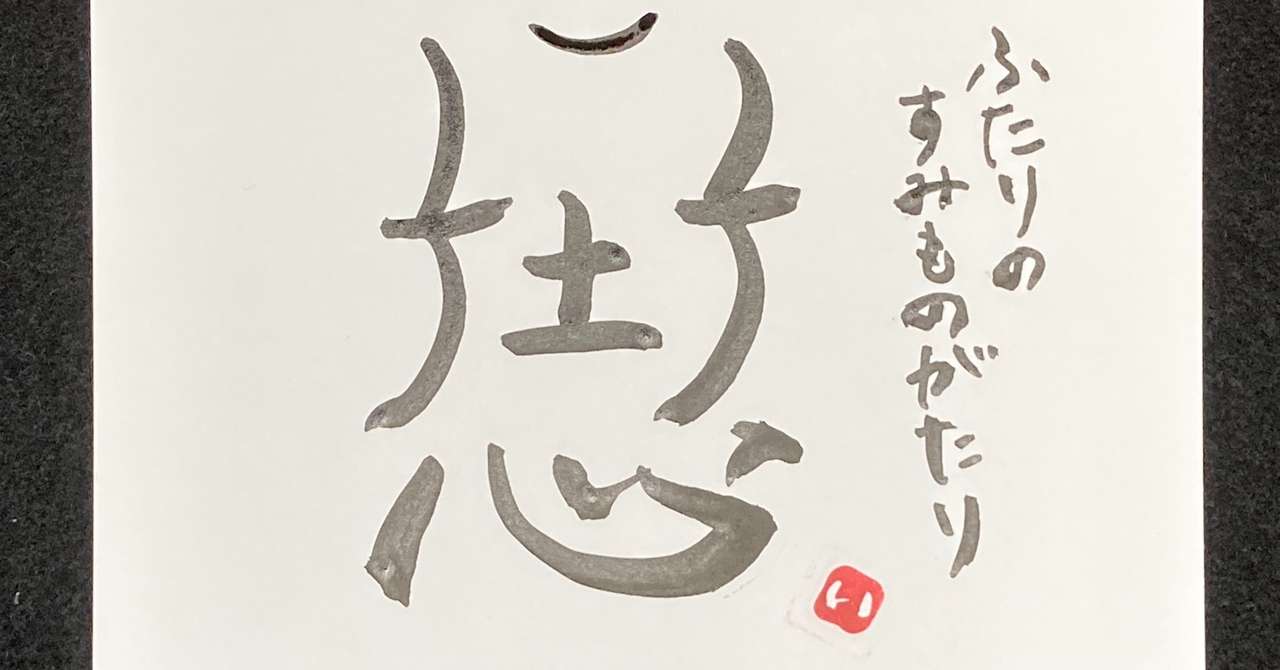 ふたりの
すみものがたり
い